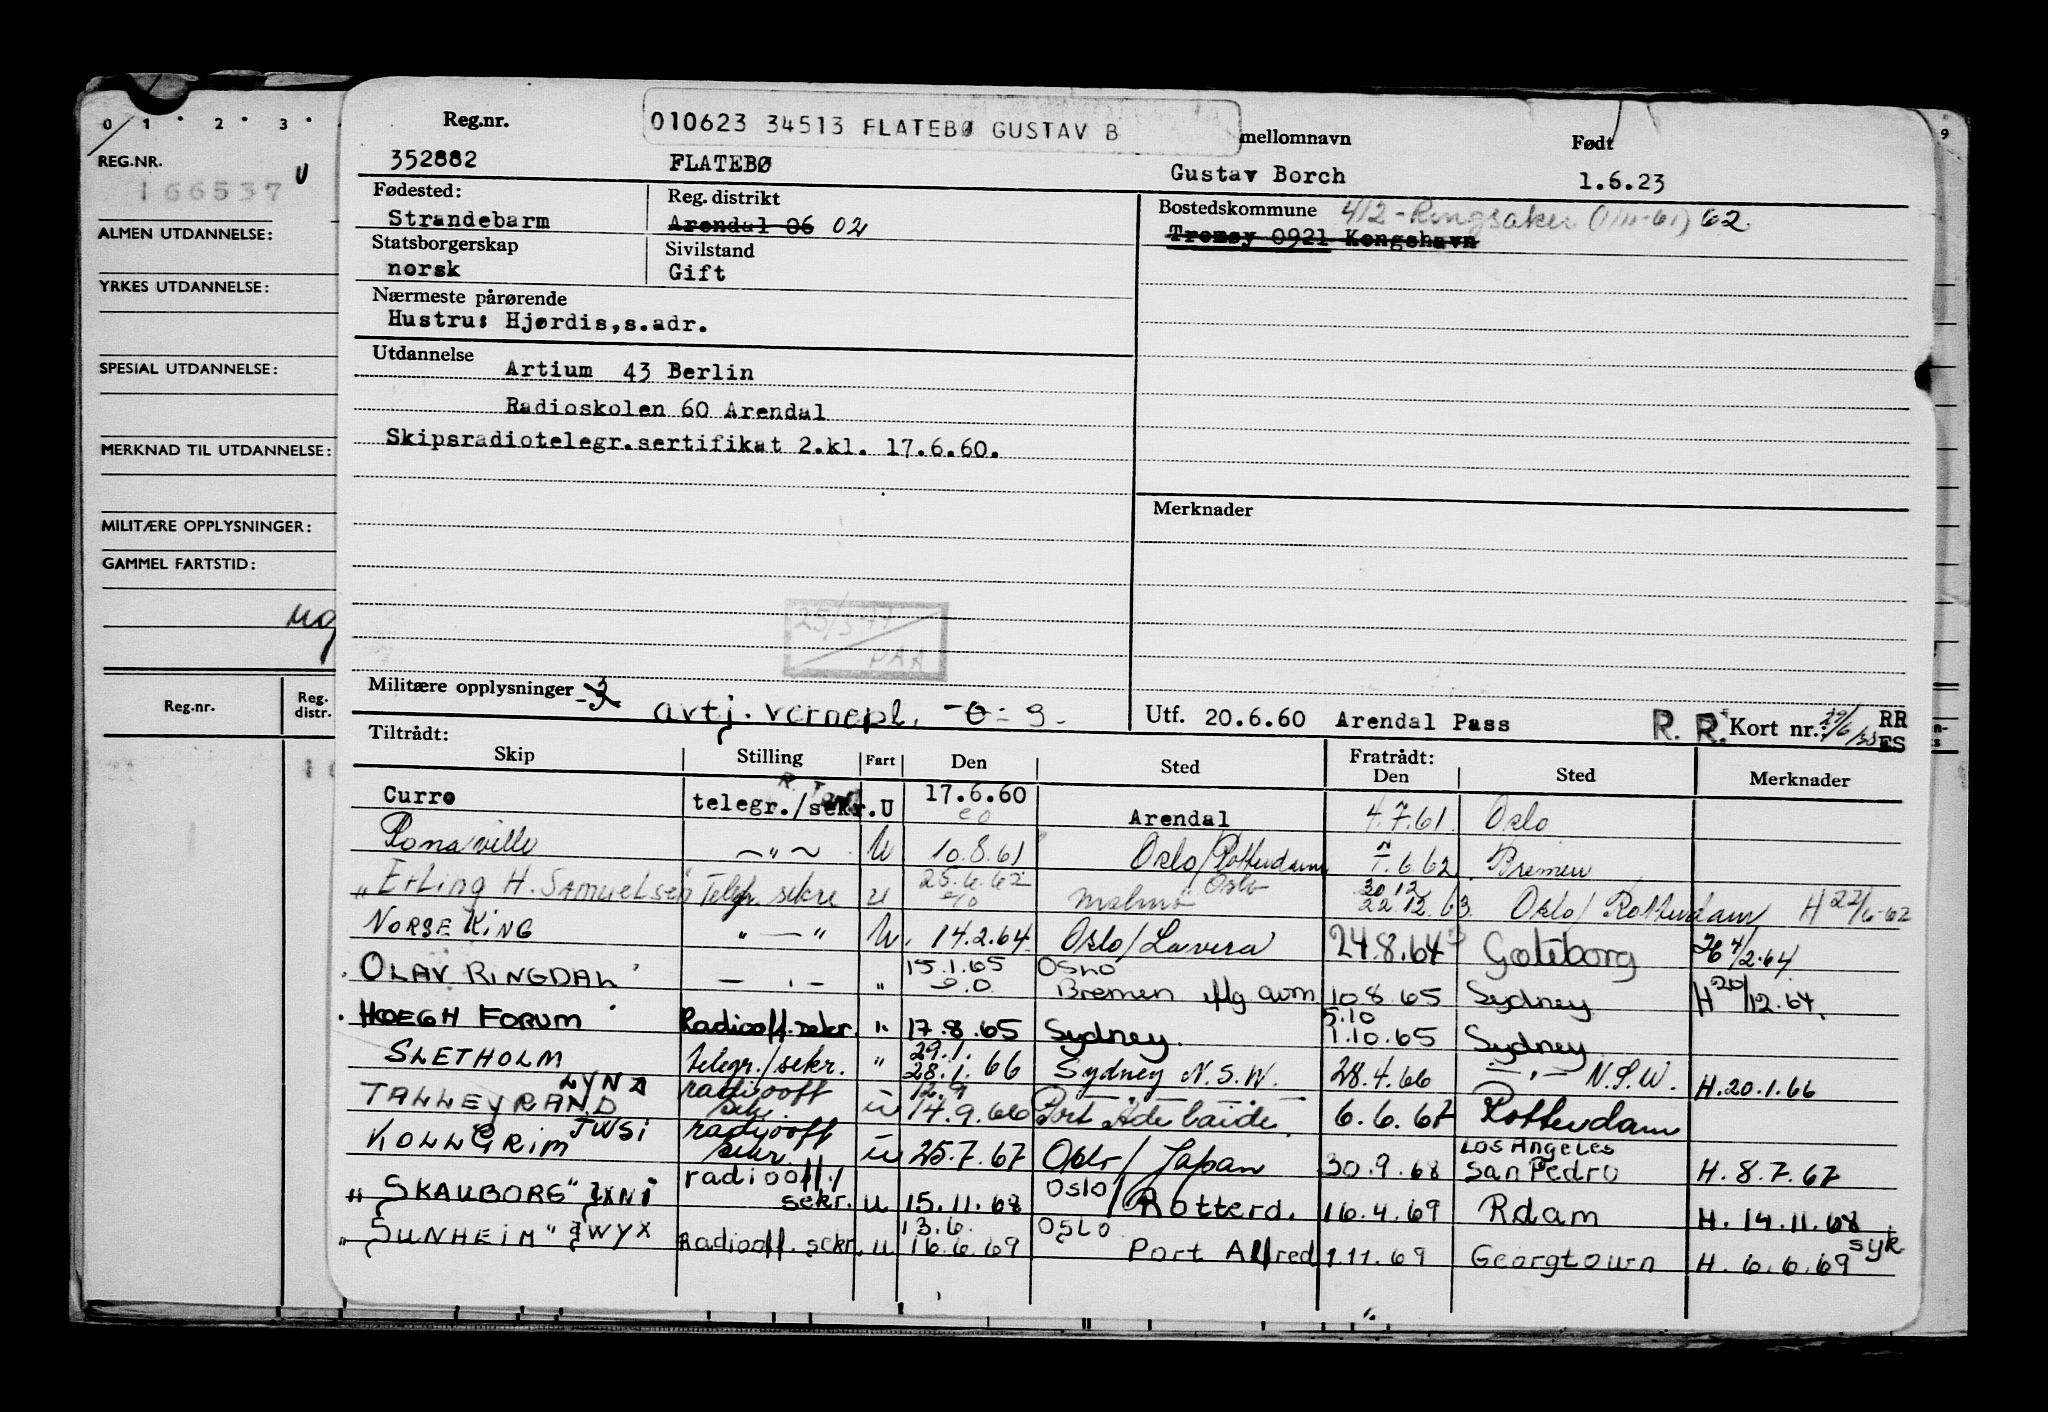 0 1 2 3
REG.NR.
166537
U
ALMEN UTDANNELSE:
YRKES UTDANNELSE:
SPESIAL UTDANNELSE:
MERKNAD TIL UTDANNELSE:
MILITÆRE OPPLYSNINGER:
GAMMEL FARTSTID:
ug
Reg.nr. Reg. distr.
9
Reg.nr. 010623 34513 FLATEBØ GUSTAV B mellomnavn Født
352882 FLATEBØ Gustav Borch 1.6.23
Fødested: Reg. distrikt Bostedskommune 412-Ringsaker (1/11-61) 62
Strandebarm Arendal 06 02 Tromøy 0921 Kongshavn
Statsborgerskap Sivilstand
norsk Gift
Nærmeste pårørende
Hustru: Hjørdis,s.adr.
Utdannelse Artium 43 Berlin
Radioskolen 60 Arendal
Skipsradiotelegr.sertifikat 2.kl. 17.6.60.
Merknader
25/3-77
PAA
Militære opplysninger -3 avtj. vernepl. -0- 9- Utf. 20.6.60 Arendal Pass R. R. Kort nr. RR ES
Tiltrådt: Fratrådt:
Skip Stilling Fart Den Sted Den Sted Merknader
Curro telegr./sekr. U 17.6.60 Arendal 4.7.61 Oslo
Ronaville —"— U 10.8.61 Oslo/Rotterdam 1.6.62 Bremen
"Erling H. Samuelsen Telegr sekre u 25.6.62 Malmø Oslo 30 12 22.12.63 Oslo/Rotterdam H 22/6-62
NORSE KING "—" U. 14.2.64 Oslo/Lavera 24.8.64 Göteborg H 4/2.64
OLAV RINGDAL — " — " 15.1.65 Oslo Bremen flg avm 10.8.65 Sydney H 20/12.64.
HOEGH FORUM Radiooff.sekr. " 17.8.65 Sydney. 5.10 1.10.65 Sydney
SLETHOLM telegr./sekr. " 29.1. 28.1.66 Sydney N.S.W. 28.4.66 —"— N.S.W. H.20.1.66
TALLEYRAND LYNZ radiooff sekr. u 12.9 14.9.66 Port Adelaide. 6.6.67 Rotterdam
KOLLGRIM JWSI radiooff sekr u 25.7.67 Oslo/Japan 30.9.68 Los Angeles San Pedro H. 8.7.67
"SKAUBORG" LXNI radiooff./ sekr. u 15.11.68 Oslo/Rotterd. 16.4.69 Rdam H. 14.11.68
"SUNHEIM" JWYX Radiooff. sekr. u 13.6. 16.6.69 OSLO Port Alfred 1.11.69 Georgtown H. 6.6.69 syk